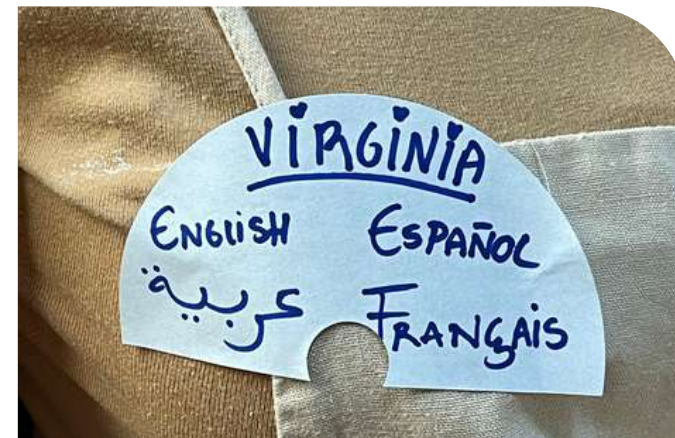 ViRGiNiA
ENGLiSH ESPAÑOL
عربية FRANÇAiS